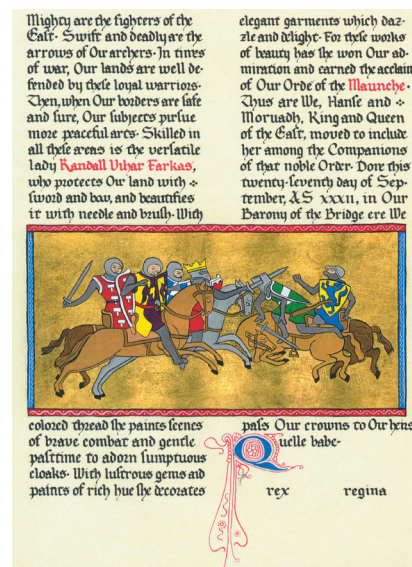 Mighty are the fighters of the
East. Swift and deadly are the
arrows of Our archers. In times
of war, Our lands are well de-
fended by these loyal warriors.
Then, when Our borders are safe
and sure, Our subjects pursue
more peaceful arts. Skilled in
all these areas is the versatile
lady Randall Vihar Farkas,
who protects Our land with
sword and bow, and beautifies
it with needle and brush. With
colored thread she paints scenes
of brave combat and gentle
pasttime to adorn sumptuous
cloaks. With lustrous gems and
paints of rich hue she decorates
elegant garments which daz-
zle and delight. For these works
of beauty has she won Our ad-
miration and earned the acclaim
of Our Orde of the Maunche.
Thus are We, Hanse and
Moruadh, King and Queen
of the East, moved to include
her among the Companions
of that noble Order. Done this
twenty-seventh day of Sep-
tember, AS XXXII, in Our
Barony of the Bridge ere We
pass Our crowns to Our heirs
Quelle babe.
rex regina